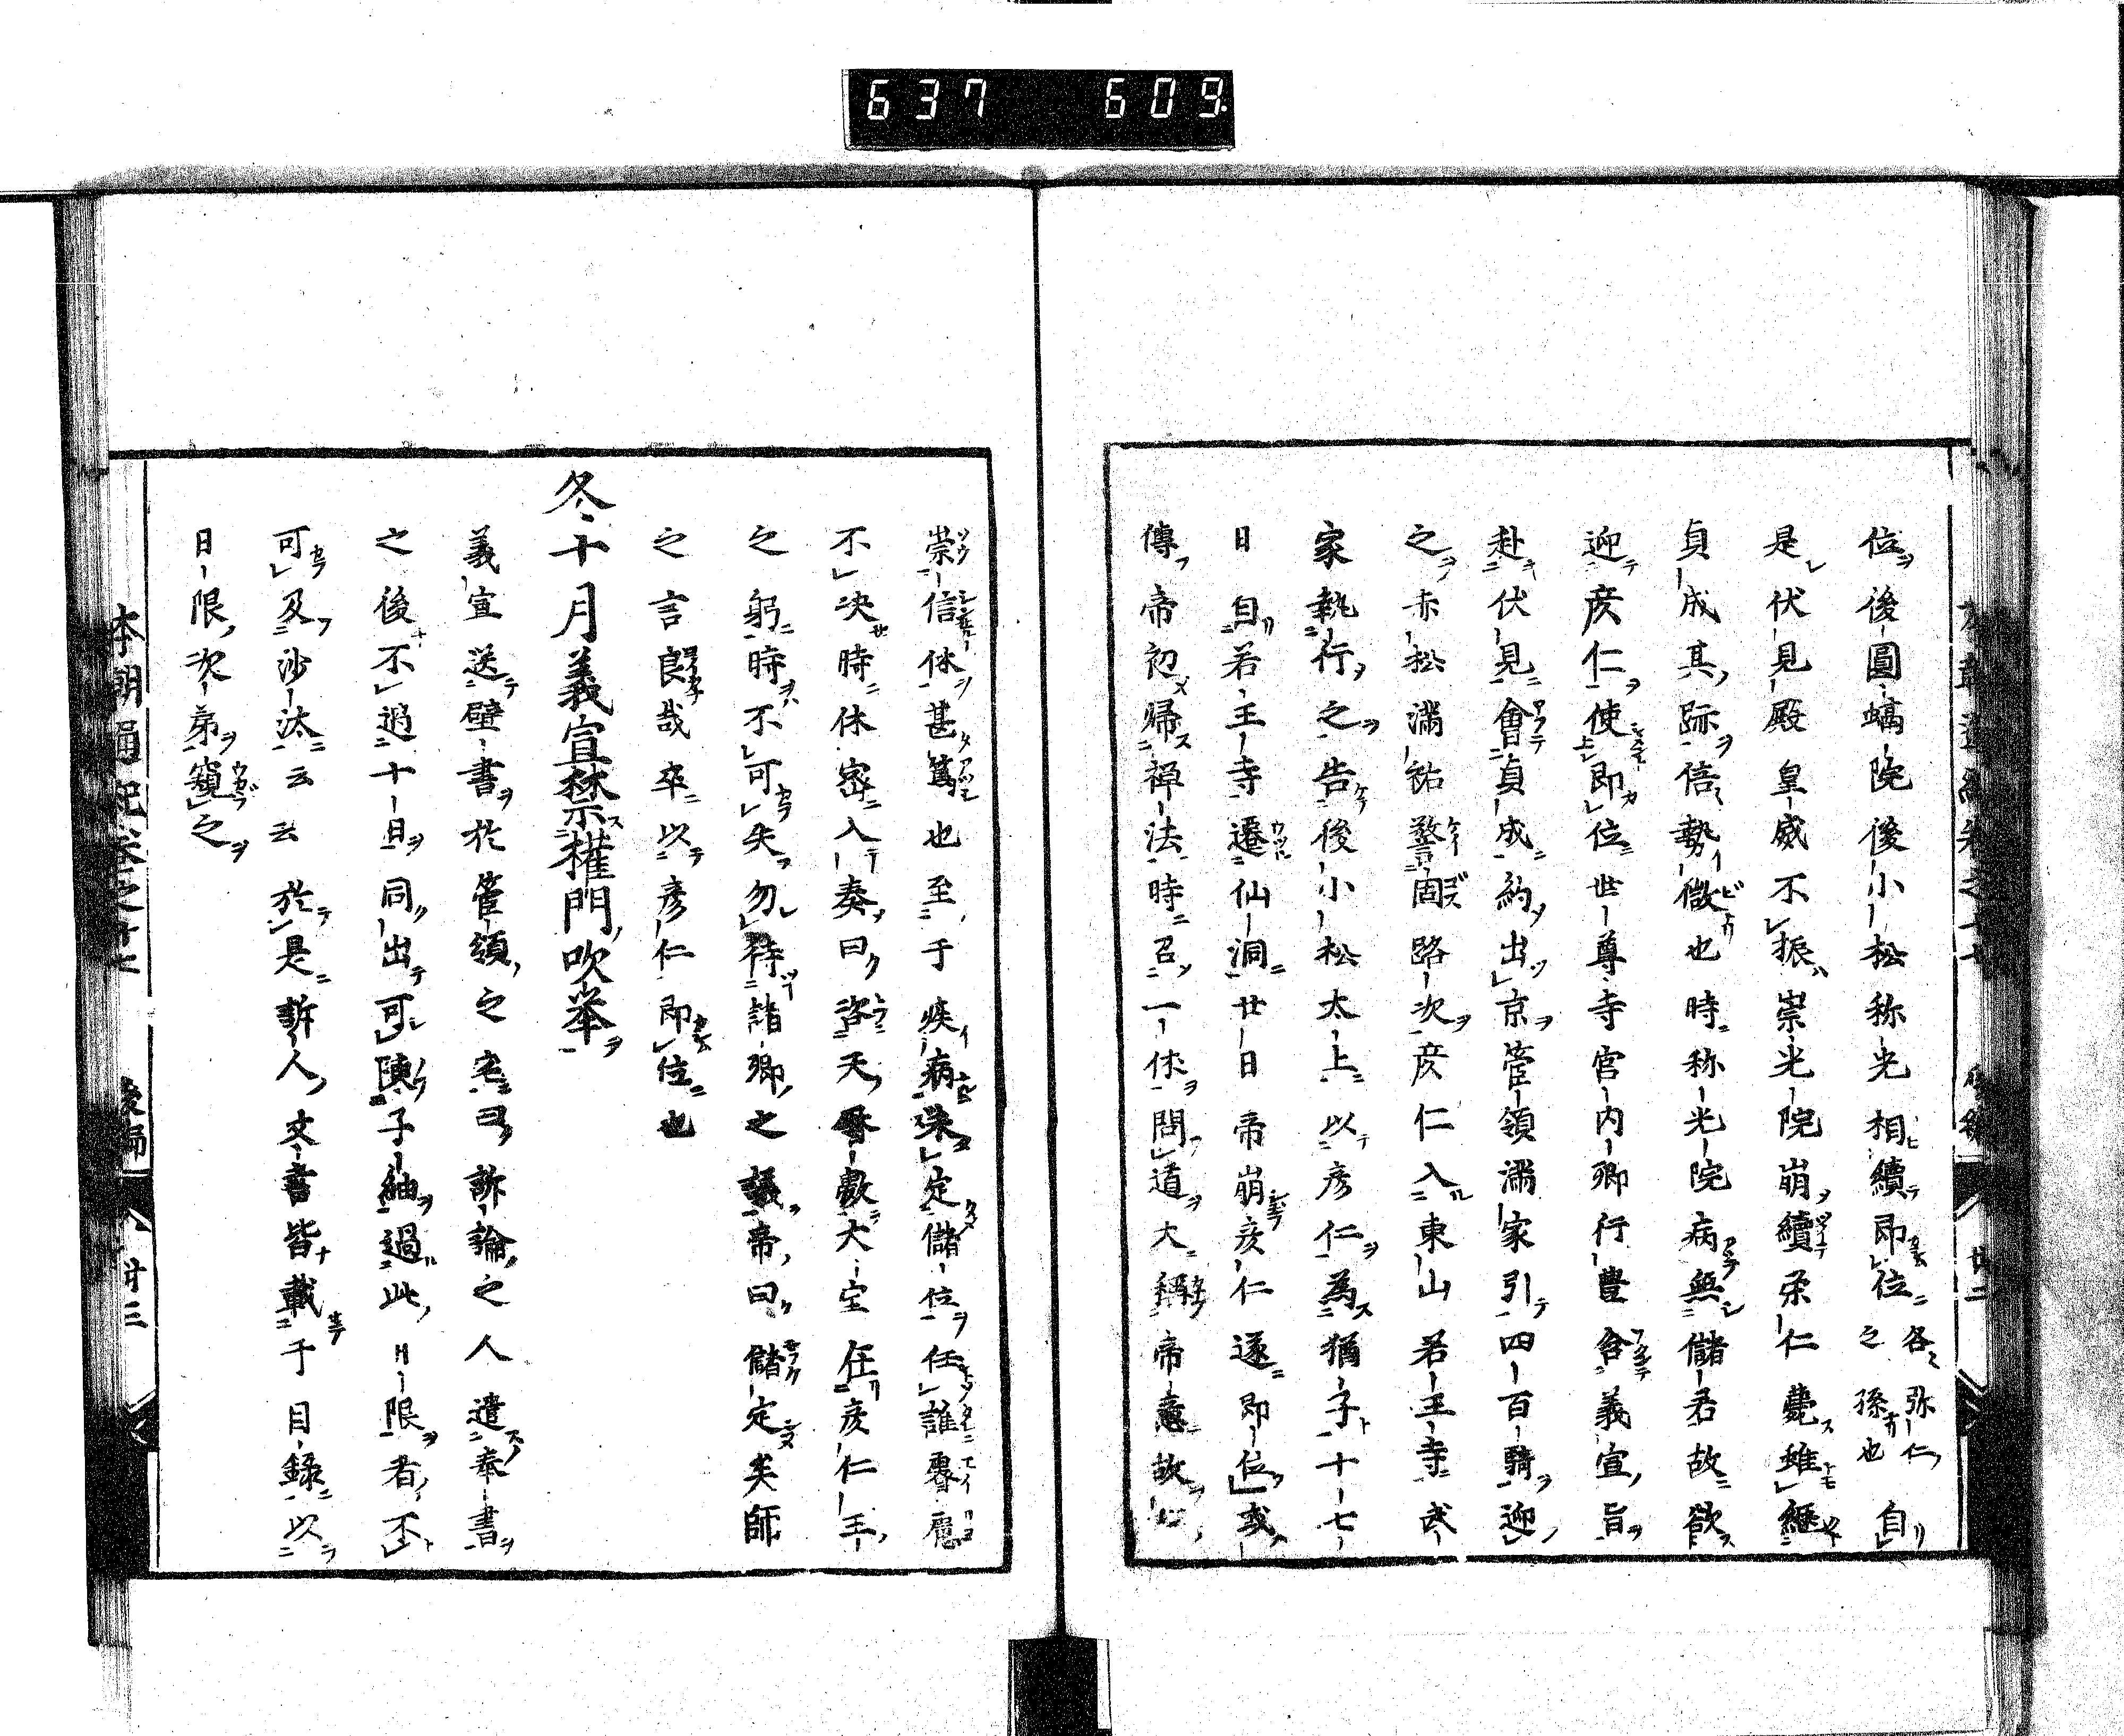 637 609
位後圓螎院後小松称光相續即位各弥仁之孫也自
是伏見殿皇威不振崇光院崩續柔仁薨雖繼
貞成其跡倍勢微也時称光院病無儲君故欲
迎彦仁使即位世尊寺宮内卿行豊含義宣旨
赴伏見會貞成約出京管領満家引四百騎迎
之赤松満祐警固路次彦仁入東山若王寺武
家執行之告後小松太上以彦仁為猶子十七
日自若王寺遷仙洞廿日帝崩彦仁遂即位或
傳帝初帰禅法時召一休問道大稱帝意故
崇信休甚篤也至于疾病未定儲位任誰叡慮
不决時休密入奏曰咨天暦數大宝在彦仁王
之躬時不可失勿待諸卿之議帝曰儲定矣師
之言良哉卒以彦仁即位也
冬十月義宣禁權門吹挙
義宣送壁書於管領之宅曰訴論之人遣奉書
之後不過十日同出可陳子細過此日限者不
可及沙汰云云於是訴人文書皆載于目録以
日限次第窺之
本朝通紀卷之十七 後編 廿三